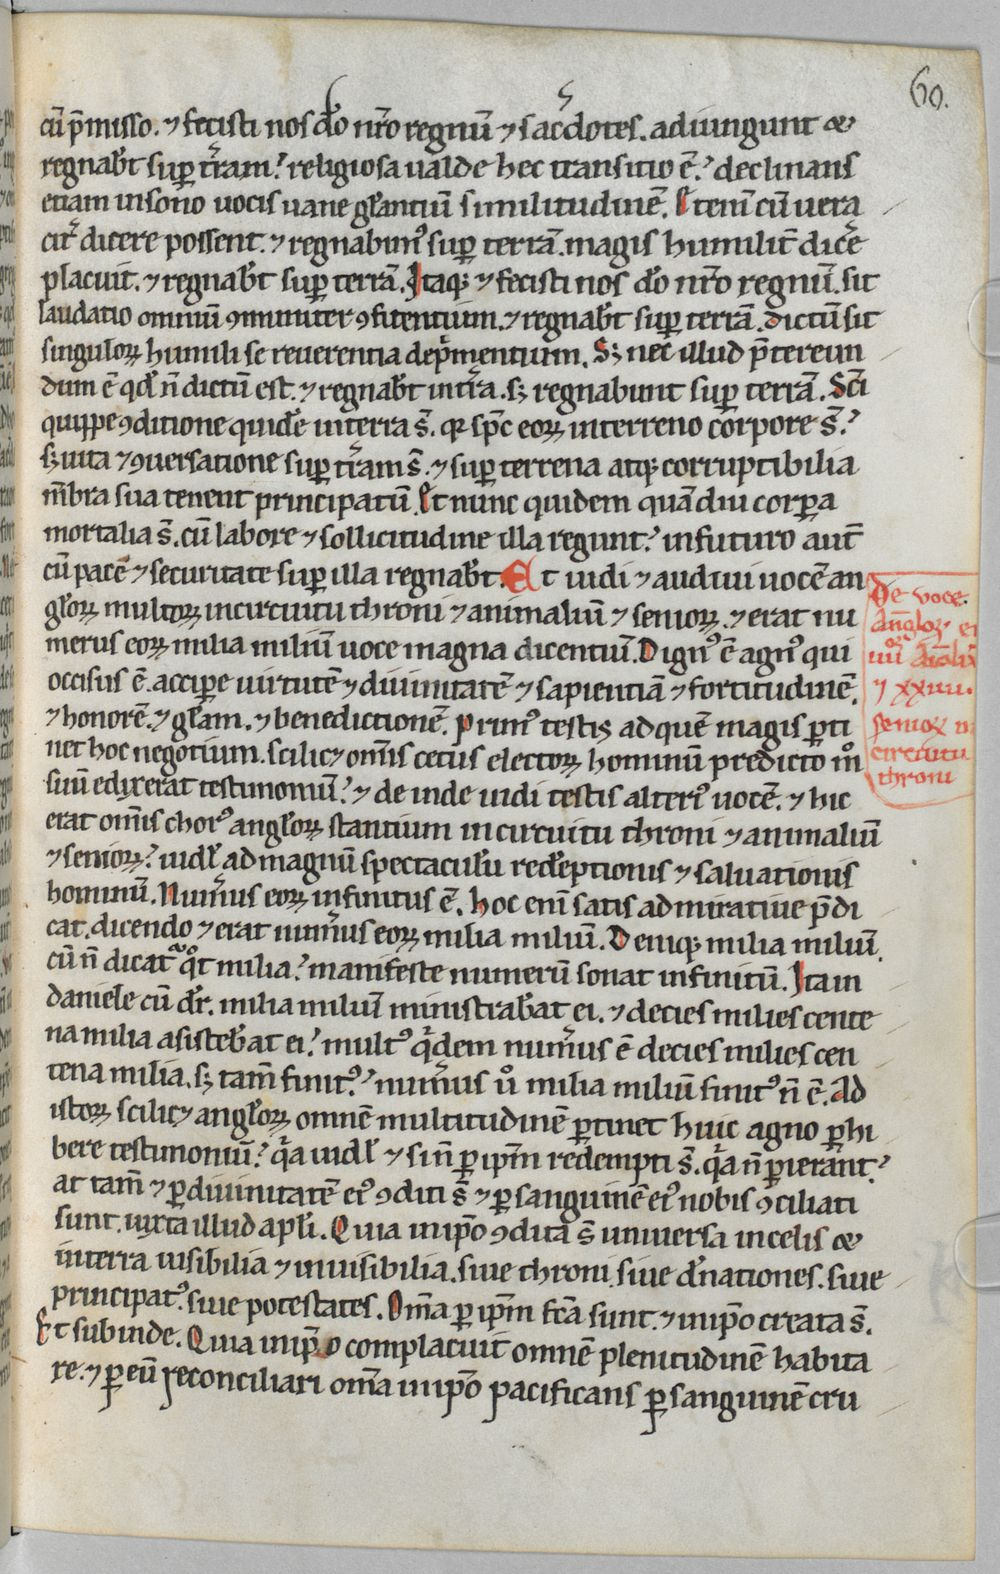 60.
cū p̄misso. ⁊ fecisti nos dō nr̄o regnū ⁊ sac̄dotes. adiungunt &
regnab̄t sup̱ tr̄am? religiosa ualde hec transitio ē? declinans
etiam insono uocis uane gl̄antiū similitudinē. Etenī cū uera
cit̄ dicere possent. ⁊ regnabimꝰ sup̱ terrā. magis humilit̄ dicē
placuit. ⁊ regnab̄t sup̱ terrā. Itaqꝫ ⁊ fecisti nos dō nr̄o regnū. sit
laudatio omniū ꝯmuniter ꝯfitentium. ⁊ regnab̄t sup̱ terrā. dictū sit
singuloꝝ humili se reuerentia dep̄mentium. Sꝫ nec illud p̄tereun
dum ē qd̄ n̄ dictū est. ⁊ regnab̄t intr̄a. sꝫ regnabunt sup̱ terrā. Sc̄i
quippe ꝯditione quidē interra s̄. qr̄ sp̄c eoꝝ interreno corpore s̄?
sꝫ uita ⁊ ꝯuersatione sup̱ tr̄am s̄. ⁊ sup̱ terrena atqꝫ corruptibilia
m̄bra sua tenent principatū. Et nunc quidem quādiu corp̱a
mortalia s̄. cū labore ⁊ sollicitudine illa regunt? infuturo aut̄
cū pacē ⁊ securitate sup̱ illa regnab̄t. Et uidi ⁊ audiui uocē an
gl̄oꝝ multoꝝ incircuitu throni ⁊ animaliū ⁊ senioꝝ. ⁊ erat nu
merus eoꝝ milia miliū uoce magna dicentiū. Dignꝰ ē agnꝰ qui
occisus ē. accip̱e uirtutē ⁊ diuinitatē ⁊ sapientiā ⁊ fortitudinē.
⁊ honorē. ⁊ gl̄am. ⁊ benedictionē. primꝰ testis ad quē magis p̱ti
net hoc negotium. scilicꝫ om̄is cetus electoꝝ hominū predicto mͦ
suū edixerat testimoniū? ⁊ de inde uidi testis alterꝰ uocē. ⁊ hic
erat om̄is chorꝰ angl̄oꝝ stantium incircuitu throni ⁊ animaliū
⁊ senioꝝ? uidl̄ ad magnū spectaculū redēptionis ⁊ saluationis
hominū. Num̄us eoꝝ infinitus ē. hoc enī satis admiratiue p̄di
cat. dicendo ⁊ erat num̄us eoꝝ milia miliū. Deniqꝫ milia miliū.
cū n̄ dicat̄ qͦt milia? manifeste numerū sonat infinitū. Itā in
daniele cū dr̄. milia miliū ministrab̄at ei. ⁊ decies milies cente
na milia asisteb̄at ei? multꝰ qͥdem num̄us ē decies milies cen
tena milia. sꝫ tam̄ finitꝰ? num̄us uͦ milia miliū finitꝰ n̄ ē. Ad
istoꝝ scilicꝫ angl̄oꝝ omnē multitudinē p̱tinet huic agno p̱hi
bere testimoniū? qͥa uidl̄ ⁊ si n̄ p̱ ip̄m redempti s̄. qͥa n̄ p̱ierānt?
at tam̄ ⁊ p̱ diuinitatē eiꝰ ꝯditi s̄ ⁊ p̱ sanguinē eiꝰ nobis ꝯciliati
sunt. iuxta illud apl̄i. Quia inip̄o ꝯdita s̄ uniuersa incelis &
interra uisibilia ⁊ inuisibilia. siue throni. siue dn̄ationes. siue
principatꝰ. siue potestates. Om̄a p̱ ip̄m fc̄a sunt. ⁊ inip̄o creata s̄.
Et subinde. Quia inip̄o complacuit omnē plenitudinē habita
re. ⁊ p̱ eū reconciliari om̄a inip̄o pacificans p̱ sanguinē cru
De uoce.
Angloꝝ et
iiiiͦꝝ aīaliū
⁊ xxiiii.
senioꝝ in
circuitu
throni